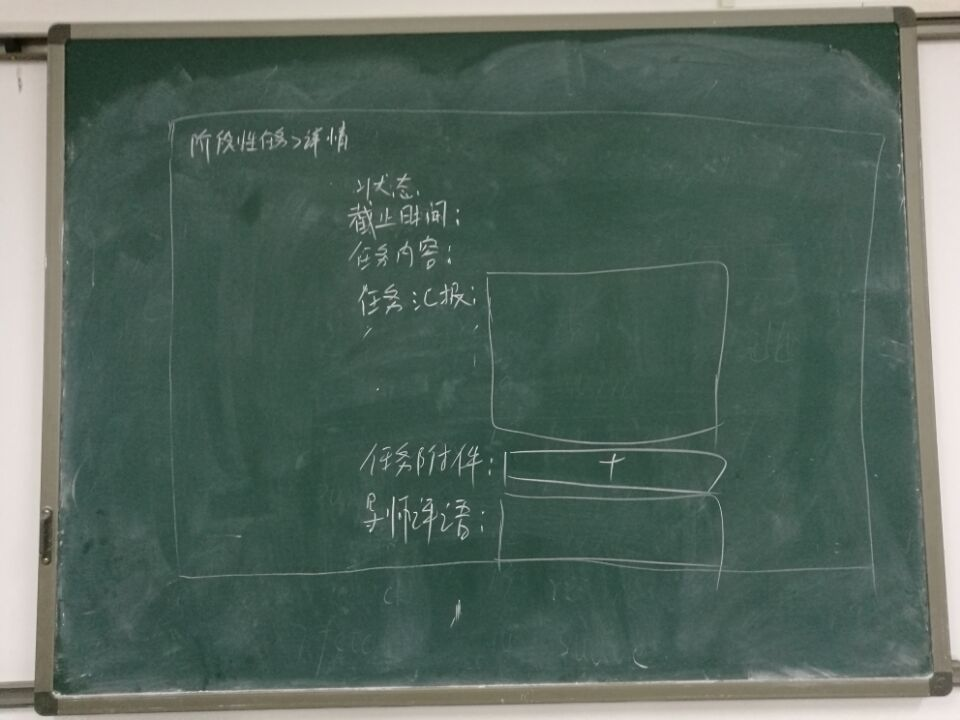 阶段性任务>详情
状态:
截止时间:
任务内容:
任务汇报:
任务附件: +
导师评语: